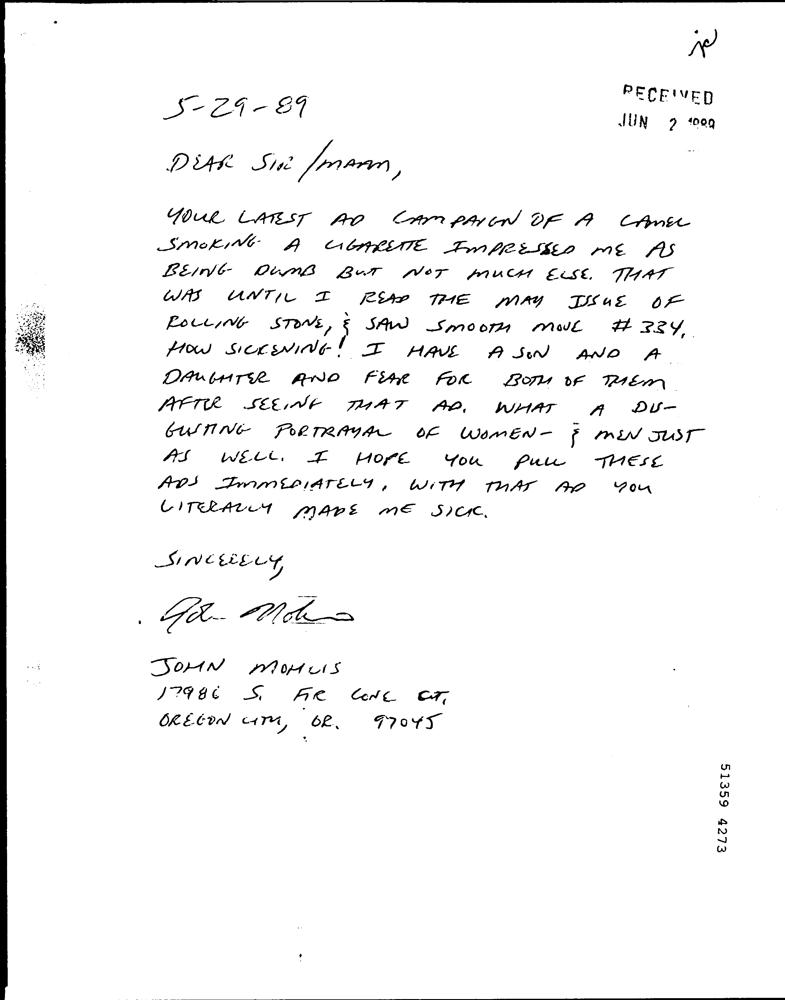 jc
RECEIVED
JUN 2 1989
5-29-89
DEAR SIR/MAAM,
YOUR LATEST AD CAMPAIGN OF A CAMEL
SMOKING A CIGARETTE IMPRESSED ME AS
BEING DUMB BUT NOT MUCH ELSE. THAT
WAS UNTIL I READ THE MAY ISSUE OF
ROLLING STONE, & SAW SMOOTH MOVE #334.
HOW SICKENING! I HAVE A SON AND A
DAUGHTER AND FEAR FOR BOTH OF THEM
AFTER SEEING THAT AD. WHAT A DIS-
GUSTING PORTRAYAL OF WOMEN- & MEN JUST
AS WELL. I HOPE YOU PULL THESE
ADS IMMEDIATELY, WITH THAT AD YOU
LITERALLY MADE ME SICK.
SINCERELY,
John Mohlis
JOHN MOHLIS
17986 S. FIR CONE CT,
OREGON CITY, OR. 97045
51359 4273